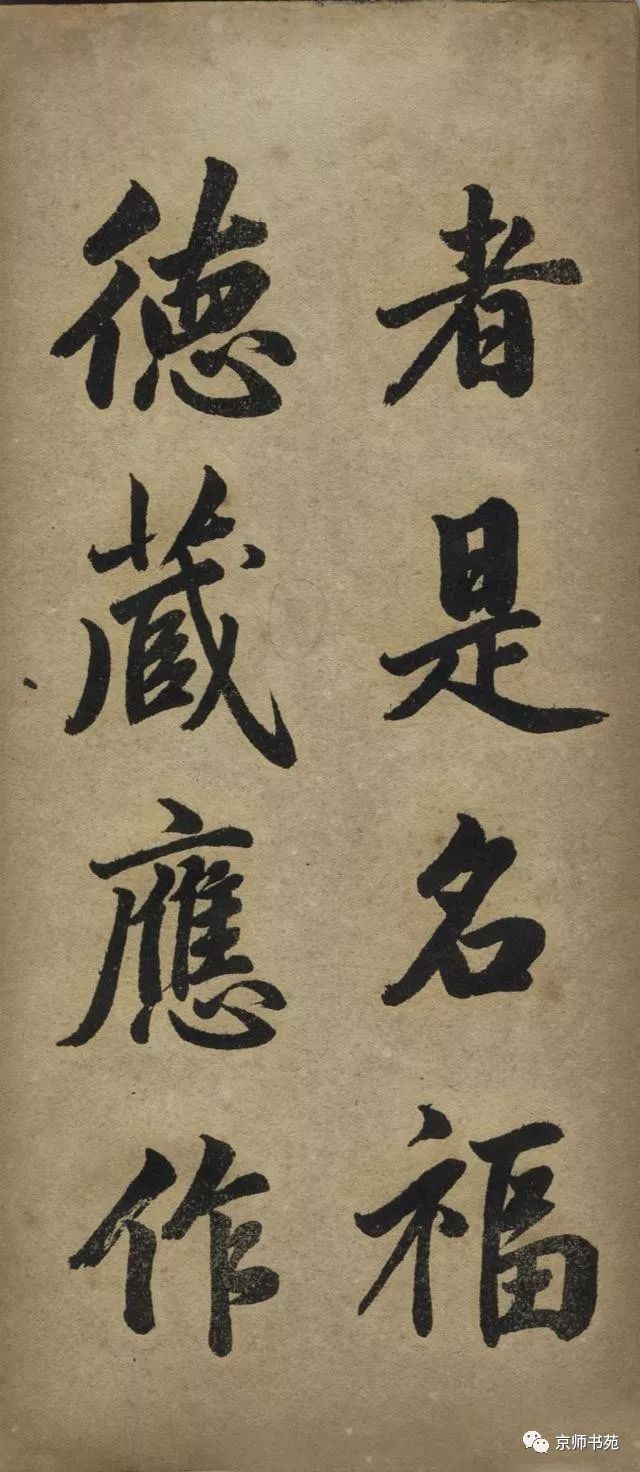 者是名福
德藏應作
京师书苑